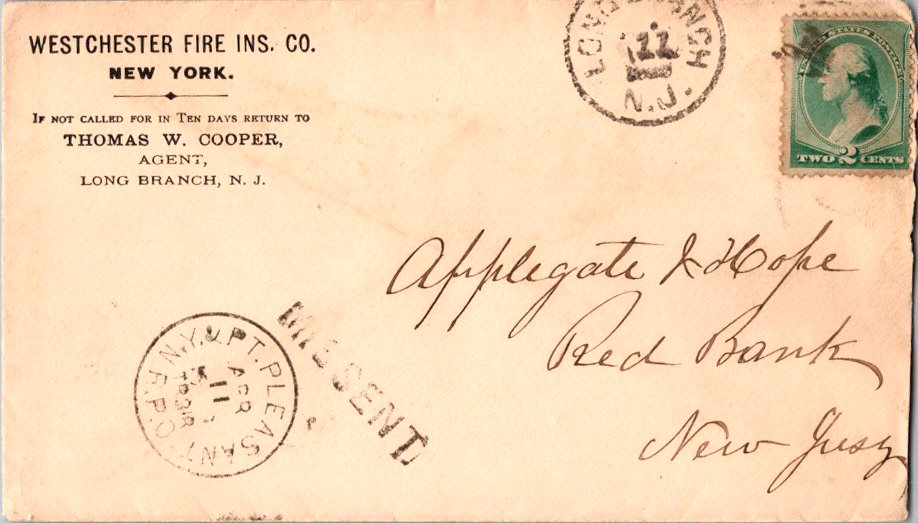 WESTCHESTER FIRE INS. CO.
NEW YORK.
IF NOT CALLED FOR IN TEN DAYS RETURN TO
THOMAS W. COOPER,
AGENT,
LONG BRANCH, N. J.
LONG BRANCH
11
N.J.
UNITED STATES POSTAGE
TWO 2 CENTS
Applegate & Hope
Red Bank
New Jusy
MISSENT
N.Y. & PT. PLEASANT R.P.O.
APR
11